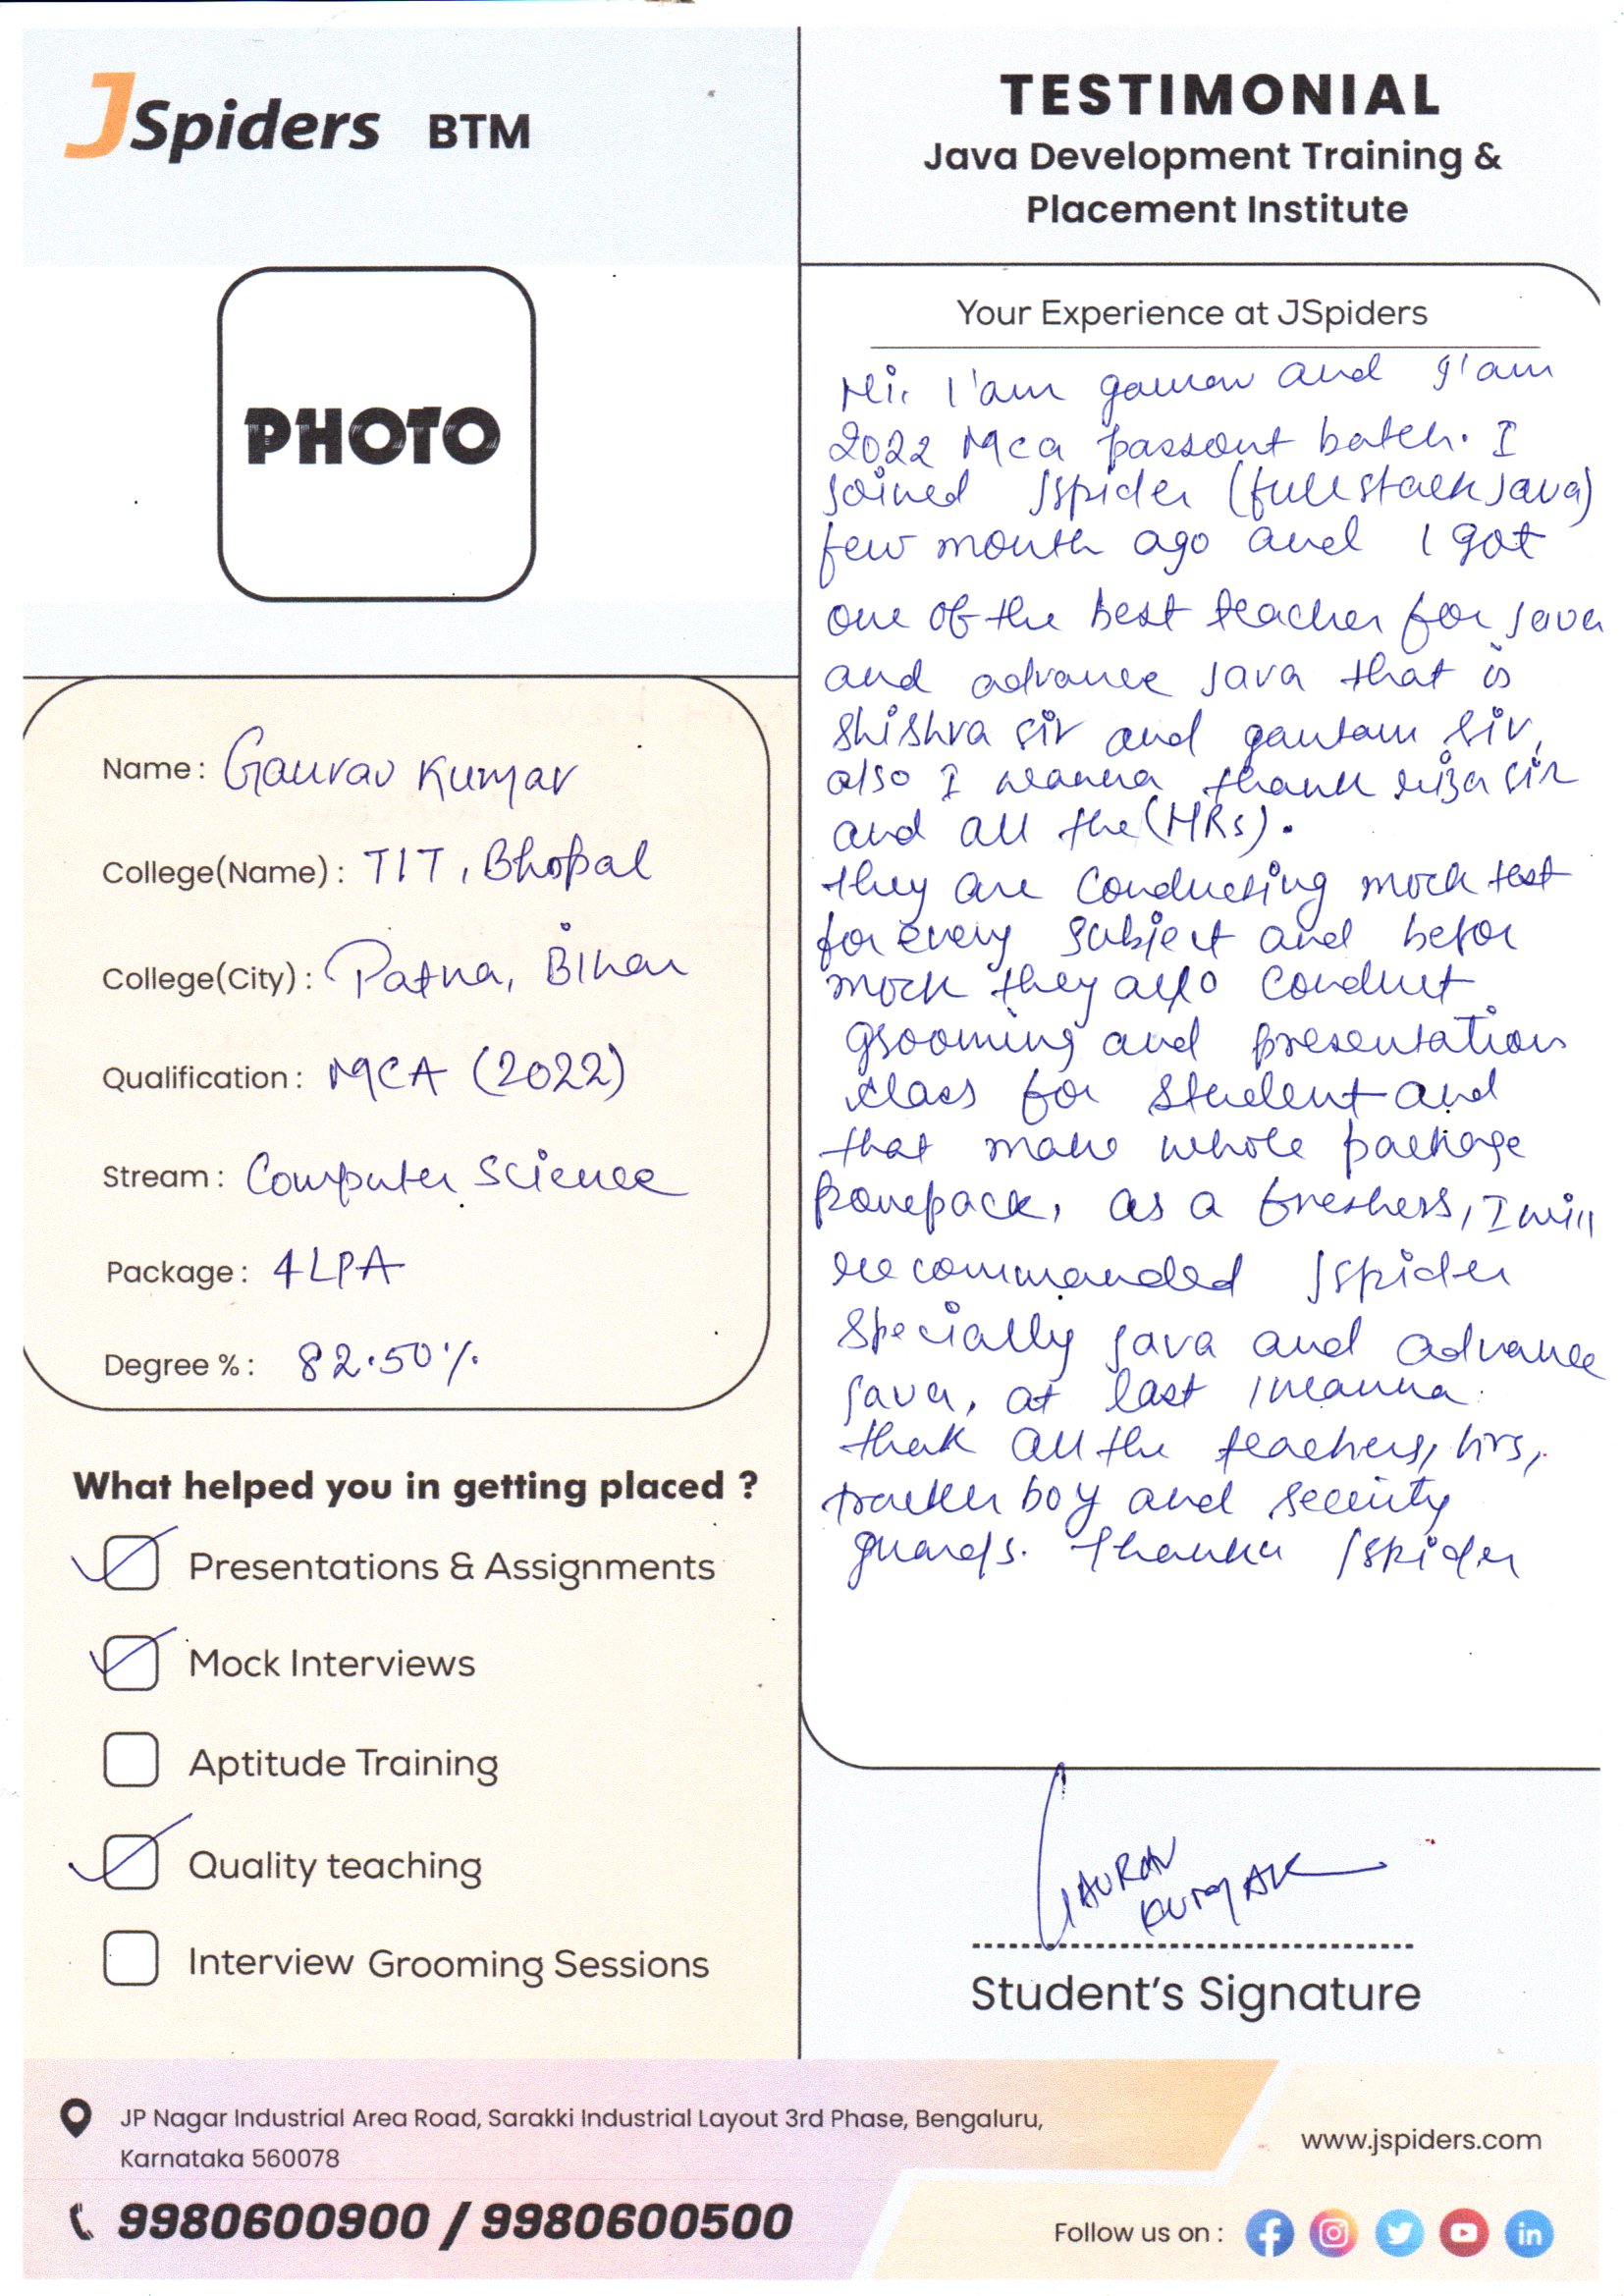 JSpiders BTM
PHOTO
Name : Gaurav Kumar
College(Name) : TIT, Bhopal
College(City) : Patna, Bihar
Qualification : MCA (2022)
Stream : Computer Science
Package : 4LPA
Degree % : 82.50%
What helped you in getting placed ?
Presentations & Assignments
Mock Interviews
Aptitude Training
Quality teaching
Interview Grooming Sessions
TESTIMONIAL
Java Development Training &
Placement Institute
Your Experience at JSpiders
Hi. I'am gaurav and I'am
2022 Mca passout batch. I
joined Jspider (full stack Java)
few month ago and I got
one of the best teacher for java
and advance Java that is
Shishra sir and gautam sir,
also I wanna thank riza sir
and all the (HRs).
they are conducting mock test
for every subject and befor
mock they also conduct
grooming and presentation
class for student and
that make whole package
as a freshers, I will
recommanded Jspider
specially Java and advance
java, at last I wanna
thak all the teachers, hrs,
tracker boy and security
guards. Thanku Jspider
GAURAV
KUMAR
Student's Signature
JP Nagar Industrial Area Road, Sarakki Industrial Layout 3rd Phase, Bengaluru,
Karnataka 560078
9980600900 / 9980600500
www.jspiders.com
Follow us on :